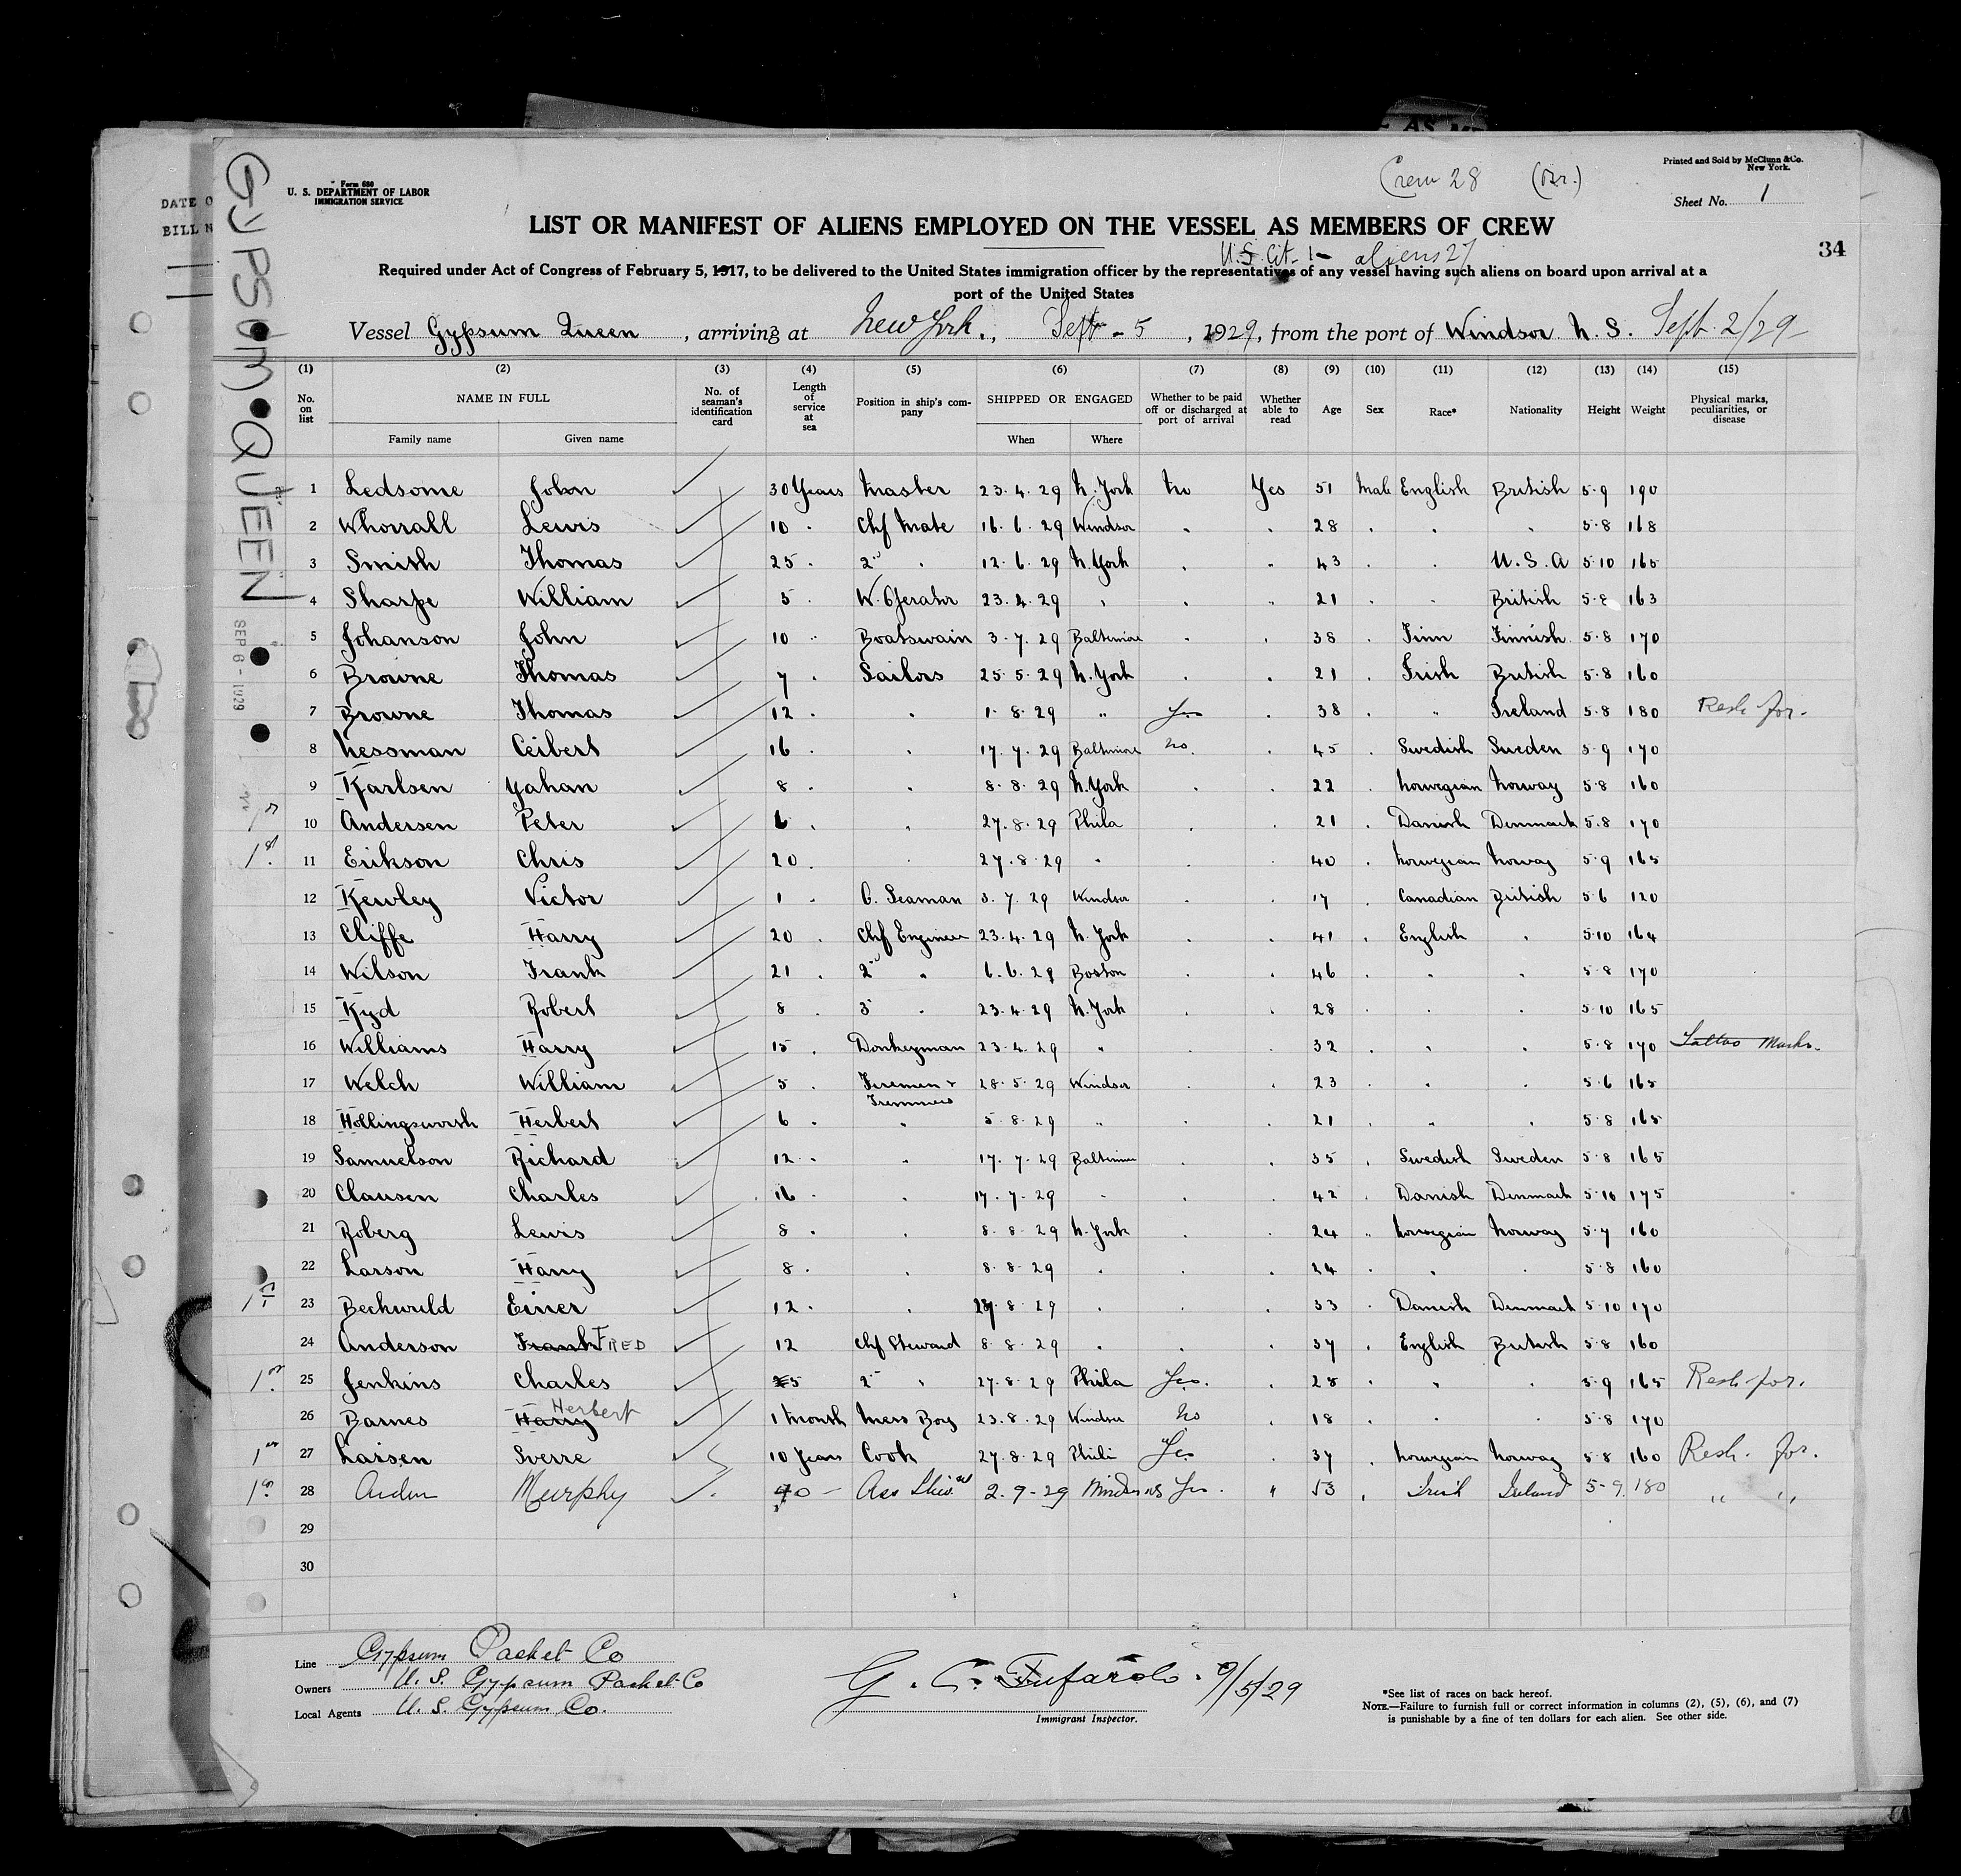 Crew 28 (Br.)
Printed and Sold by McClunn & Co.
New York.
Form 680
U. S. DEPARTMENT OF LABOR
IMMIGRATION SERVICE
Sheet No. 1
DATE O
BILL N
LIST OR MANIFEST OF ALIENS EMPLOYED ON THE VESSEL AS MEMBERS OF CREW
34
U.S. Cit - 1 - aliens 27
Required under Act of Congress of February 5, 1917, to be delivered to the United States immigration officer by the representatives of any vessel having such aliens on board upon arrival at a
port of the United States
Vessel Gypsum Queen, arriving at New York, Sept - 5, 1929, from the port of Windsor N. S. Sept. 2/29
GYPSUM QUEEN
SEP 6 - 1929
(1) (2) (3) (4) (5) (6) (7) (8) (9) (10) (11) (12) (13) (14) (15)
No. on list NAME IN FULL No. of seaman's identification card Length of service at sea Position in ship's company SHIPPED OR ENGAGED Whether to be paid off or discharged at port of arrival Whether able to read Age Sex Race* Nationality Height Weight Physical marks, peculiarities, or disease
Family name Given name When Where
1 Ledsome John 30 Years Master 23. 4. 29 N. York No Yes 51 Male English British 5·9 190
2 Whorrall Lewis 10 Chf Mate 16. 6. 29 Windsor 28 5·8 168
3 Smith Thomas 25 2" 12. 6. 29 N. York 43 U. S. A 5·10 165
4 Sharpe William 5 W. Operator 23. 4. 29 21 British 5·8 163
5 Johanson John 10 " Boatswain 3. 7. 29 Baltimore 38 Finn Finnish 5·8 170
6 Browne Thomas 7 Sailors 25. 5. 29 N. York 21 Irish British 5·8 160
7 Browne Thomas 12 1. 8. 29 " Yes 38 " Ireland 5·8 180 Resh for.
8 Nessman Ceibert 16 17. 7. 29 Baltimore No 45 Swedish Sweden 5·9 170
9 Karlsen Yahan 8 8. 8. 29 N. York 22 Norwegian Norway 5·8 160
10 Andersen Peter 6 27. 8. 29 Phila 21 Danish Denmark 5·8 170
11 Erikson Chris 20 27. 8. 29 " 40 Norwegian Norway 5·9 165
12 Kewley Victor 1 O. Seaman 3. 7. 29 Windsor 17 Canadian British 5·6 120
13 Cliffe Harry 20 Chf Engineer 23. 4. 29 N. York 41 English 5·10 164
14 Wilson Frank 21 2" " 6. 6. 29 Boston 46 " 5·8 170
15 Kyd Robert 8 3" 23. 4. 29 N. York 28 5·10 165
16 Williams Harry 15 Donkeyman 23. 4. 29 " 32 " 5·8 170 Tattoo Marks.
17 Welch William 5 Firemen + Trimmers 28. 5. 29 Windsor 23 " 5·6 165
18 Hollingsworth Herbert 6 " 5. 8. 29 " 21 " 5·8 165
19 Samuelson Richard 12 " 17. 7. 29 Baltimore 35 Swedish Sweden 5·8 165
20 Clausen Charles 16 17. 7. 29 " 42 Danish Denmark 5·10 175
21 Roberg Lewis 8 8. 8. 29 N. York 24 Norwegian Norway 5·7 160
22 Larson Harry 8 8. 8. 29 24 " 5·8 160
23 Beckwild Einer 12 8. 29 33 Danish Denmark 5·10 170
24 Anderson Frank FRED 12 Chf Steward 8. 8. 29 37 English British 5·8 160
25 Jenkins Charles 5 2" 27. 8. 29 Phila Yes. 28 " 5·9 165 Resh for.
26 Barnes Harry Herbert 1 Month Mess Boy 23. 8. 29 Windsor No 18 5·8 170
27 Larsen Sverre 10 Years Cook 27. 8. 29 Phili Yes 37 Norwegian Norway 5·8 160 Resh. for.
28 Murphy 40 - Ass 2. 9 - 29 Windsor NS Yes. " 53 Irish Ireland 5-9 180 " "
29
30
Line Gypsum Packet Co
Owners U. S. Gypsum Packet Co
Local Agents U. S. Gypsum Co.
G. C. Tufarolo. 9/5/29
Immigrant Inspector.
*See list of races on back hereof.
NOTE.—Failure to furnish full or correct information in columns (2), (5), (6), and (7)
is punishable by a fine of ten dollars for each alien. See other side.